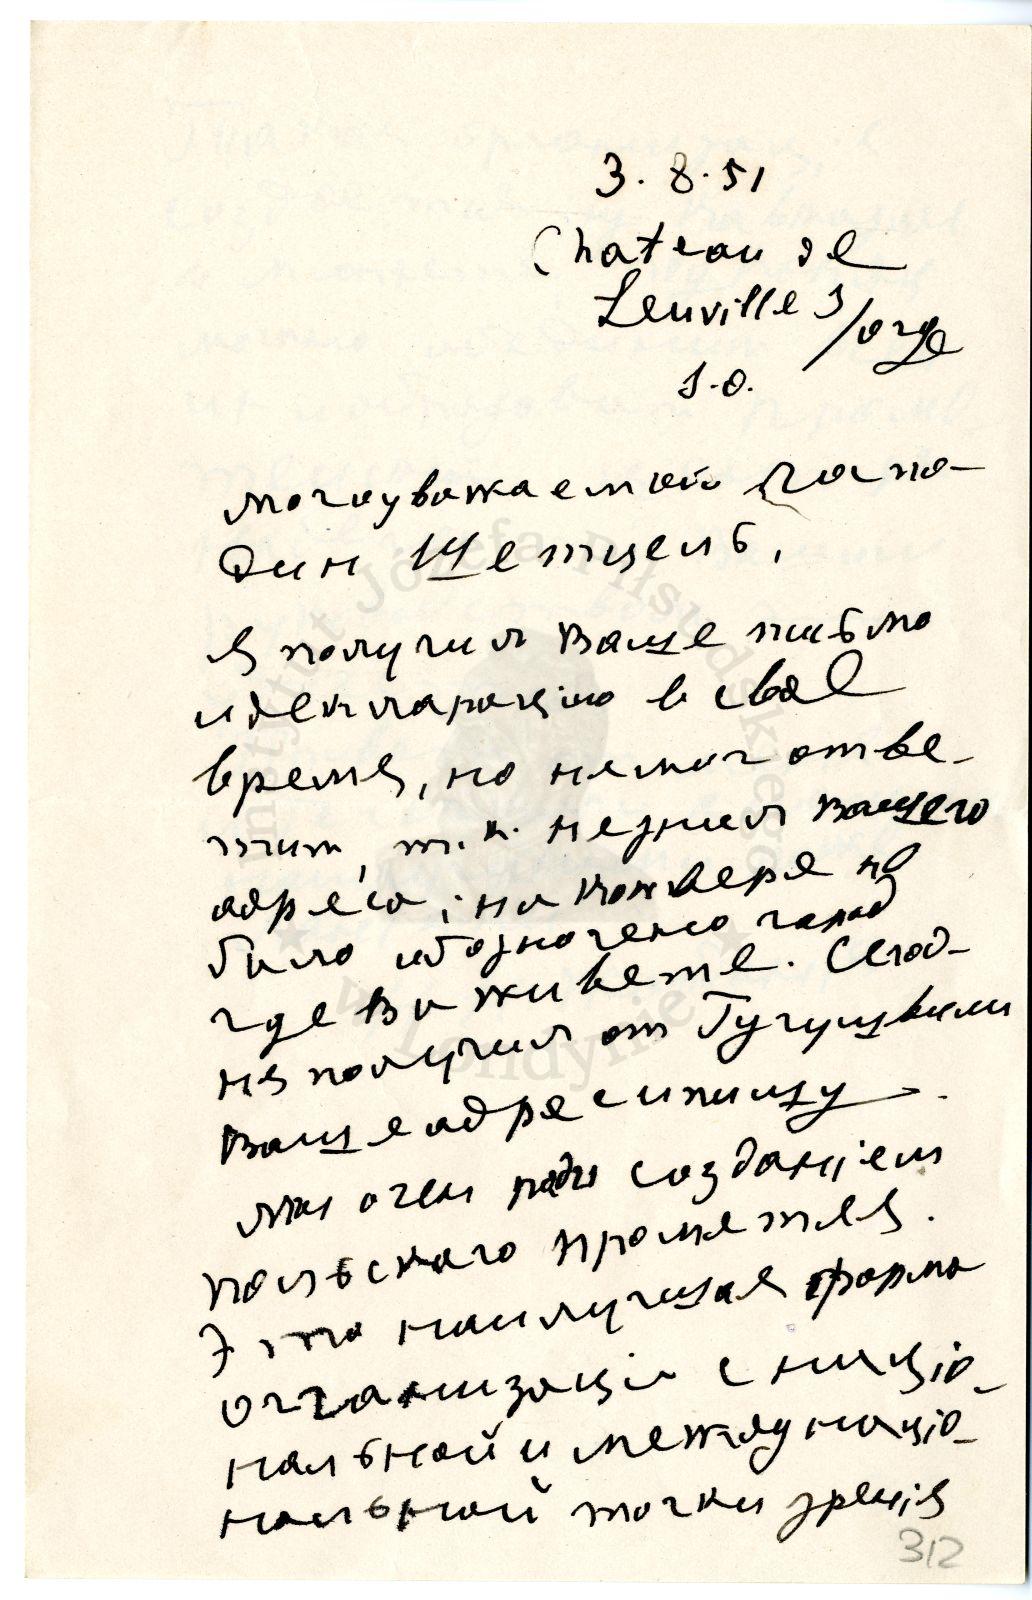 3. 8. 51
Chateau de
Leuville s/orge
S.O.
Многоуважаемый Госпо-
дин Шетцель,
Я получил Ваше письмо
и декларацію в свое
время, но не мог отве-
тит, т.к. не знал Вашего
адреса; на конверте не
било обозначено город
где Ви живете. Сегод-
ня получил от Гугушвили
Ваше адрес и пишу.
Ми очен рады созданіем
польскаго прометея.
Это наилучшая форма
организаціи с націо-
нальной и междунаціо-
нальной точки зренія
312
Instytut Józefa Piłsudskiego
w Londynie